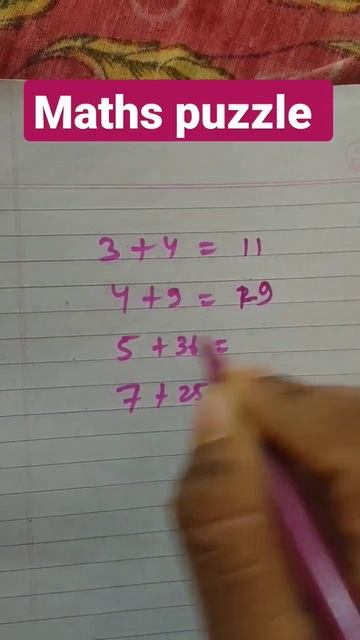 Maths puzzle
3 + 4 = 11
4 + 9 =
5 + 36 =
7 + 25